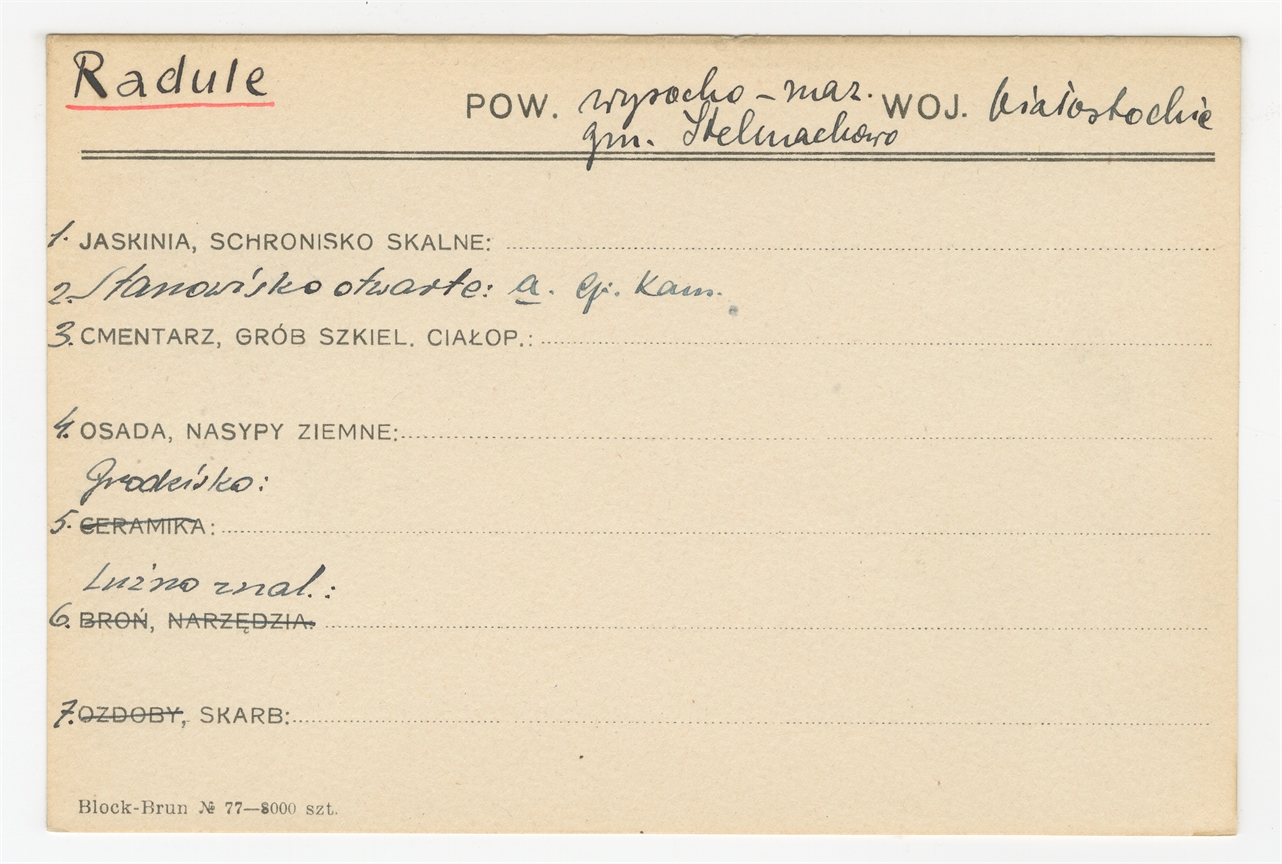 Radule
POW. wysocko-maz. WOJ. białostockie
gm. Stelmachowo
1. JASKINIA, SCHRONISKO SKALNE:
2. Stanowisko otwarte: a. ep. Kam.
3. CMENTARZ, GRÓB SZKIEL. CIAŁOP.:
4. OSADA, NASYPY ZIEMNE:
Grodzisko:
5. CERAMIKA:
Luźno znal.:
6. BROŃ, NARZĘDZIA:
7. OZDOBY, SKARB:
Block-Brun № 77—8000 szt.